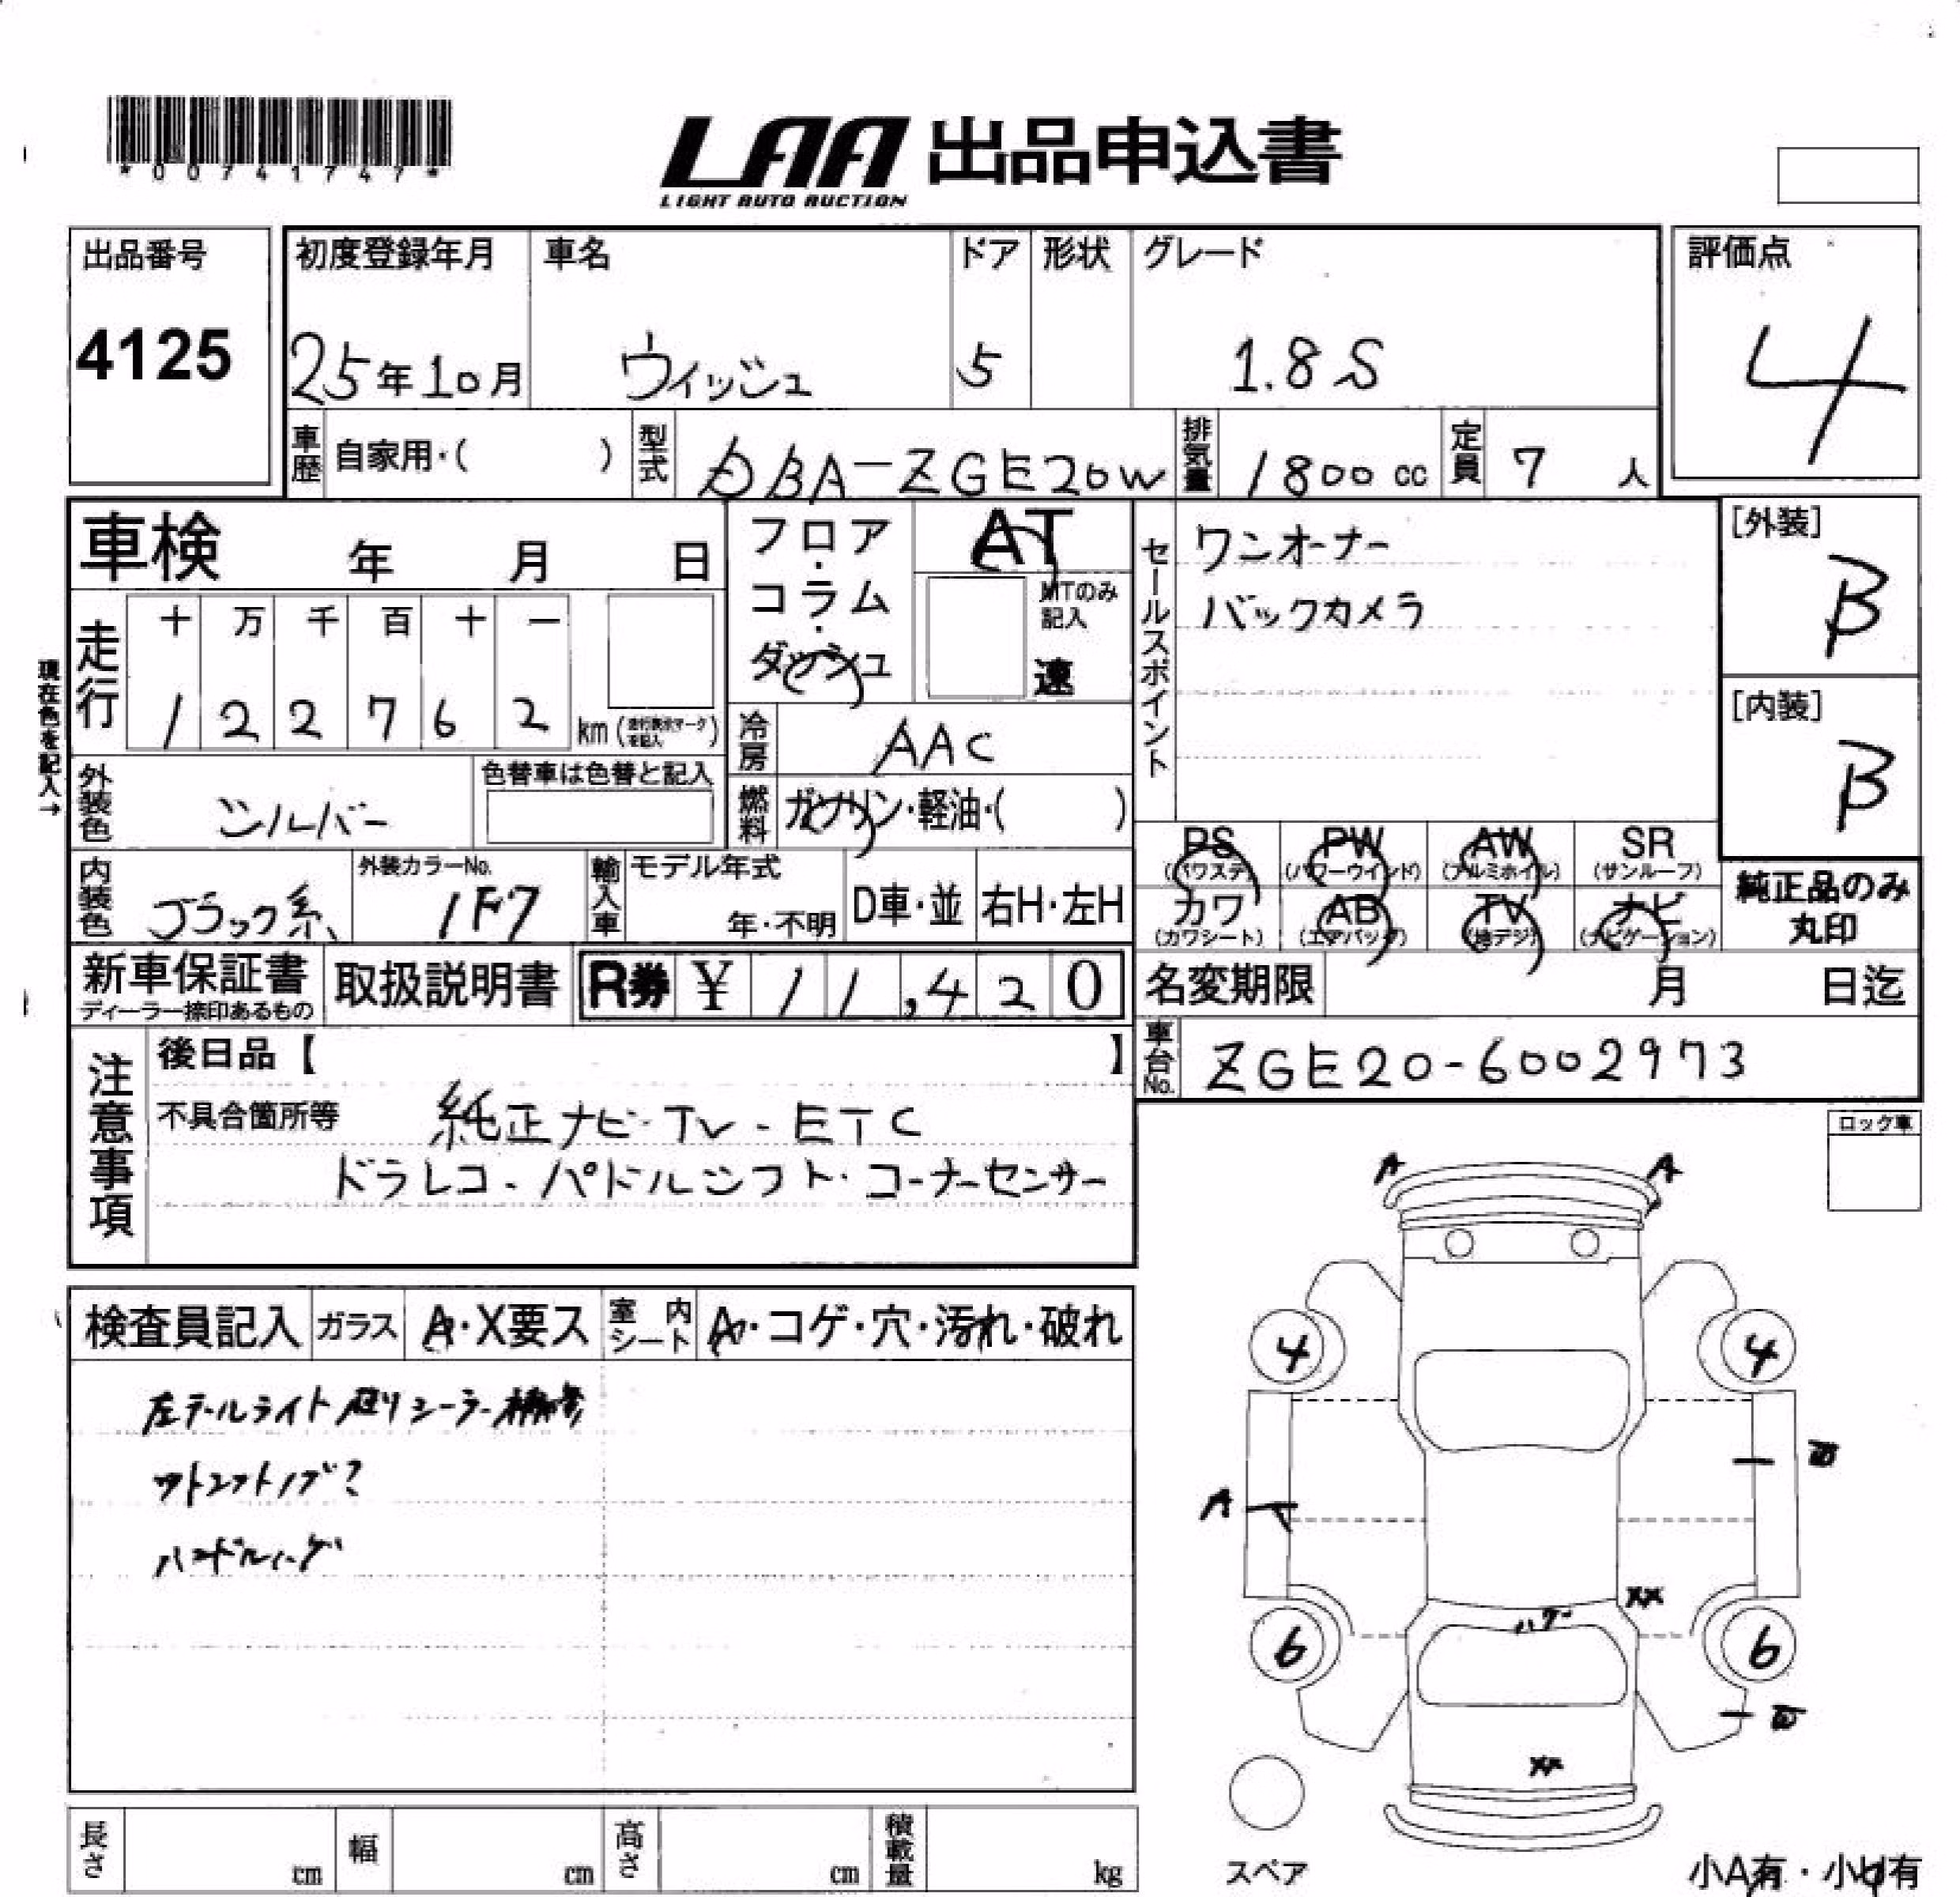 *00741747*
LAA 出品申込書
LIGHT AUTO AUCTION
出品番号
4125
初度登録年月
25年10月
車名
ウィッシュ
ドア
5
形状
グレード
1.8S
評価点
4
車歴 自家用・( )
型式 DBA-ZGE20W
排気量 1800cc
定員 7人
車検 年 月 日
走行
十 万 千 百 十 一
1 2 2 7 6 2 km (走行表示マークを記入)
現在色を記入→
外装色 シルバー
色替車は色替と記入
内装色 ブラック系
外装カラーNo. 1F7
輸入車
モデル年式 年・不明
D車・並
右H・左H
フロア・コラム・ダッシュ
AT
MTのみ記入
速
冷房 AAC
燃料 ガソリン・軽油・( )
セールスポイント
ワンオーナー
バックカメラ
[外装]
B
[内装]
B
PS (パワステ)
PW (パワーウインド)
AW (アルミホイル)
SR (サンルーフ)
カワ (カワシート)
AB (エアバッグ)
TV (地デジ)
ナビ (ナビゲーション)
純正品のみ丸印
新車保証書
ディーラー捺印あるもの
取扱説明書
R券 ¥11,420
名変期限 月 日迄
車台No. ZGE20-6002973
注意事項
後日品【 】
不具合箇所等 純正ナビ・TV・ETC
ドラレコ・パドルシフト・コーナーセンサー
ロック車
検査員記入
ガラス A・X要ス
室内シート A・コゲ・穴・汚れ・破れ
左テールライト廻りシーラー補修
A A
4 4
A
XX
6 6
XX
スペア
小A有・小U有
長さ cm
幅 cm
高さ cm
積載量 kg